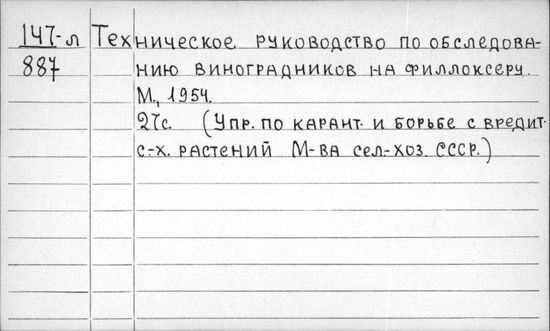 147-л Техническое руководство по обследова-
887 нию виноградников на филлоксеру.
М., 1954.
27с. (Упр. по карант. и борьбе с вредит.
с.-х. растений М-ва сел-хоз. СССР.)